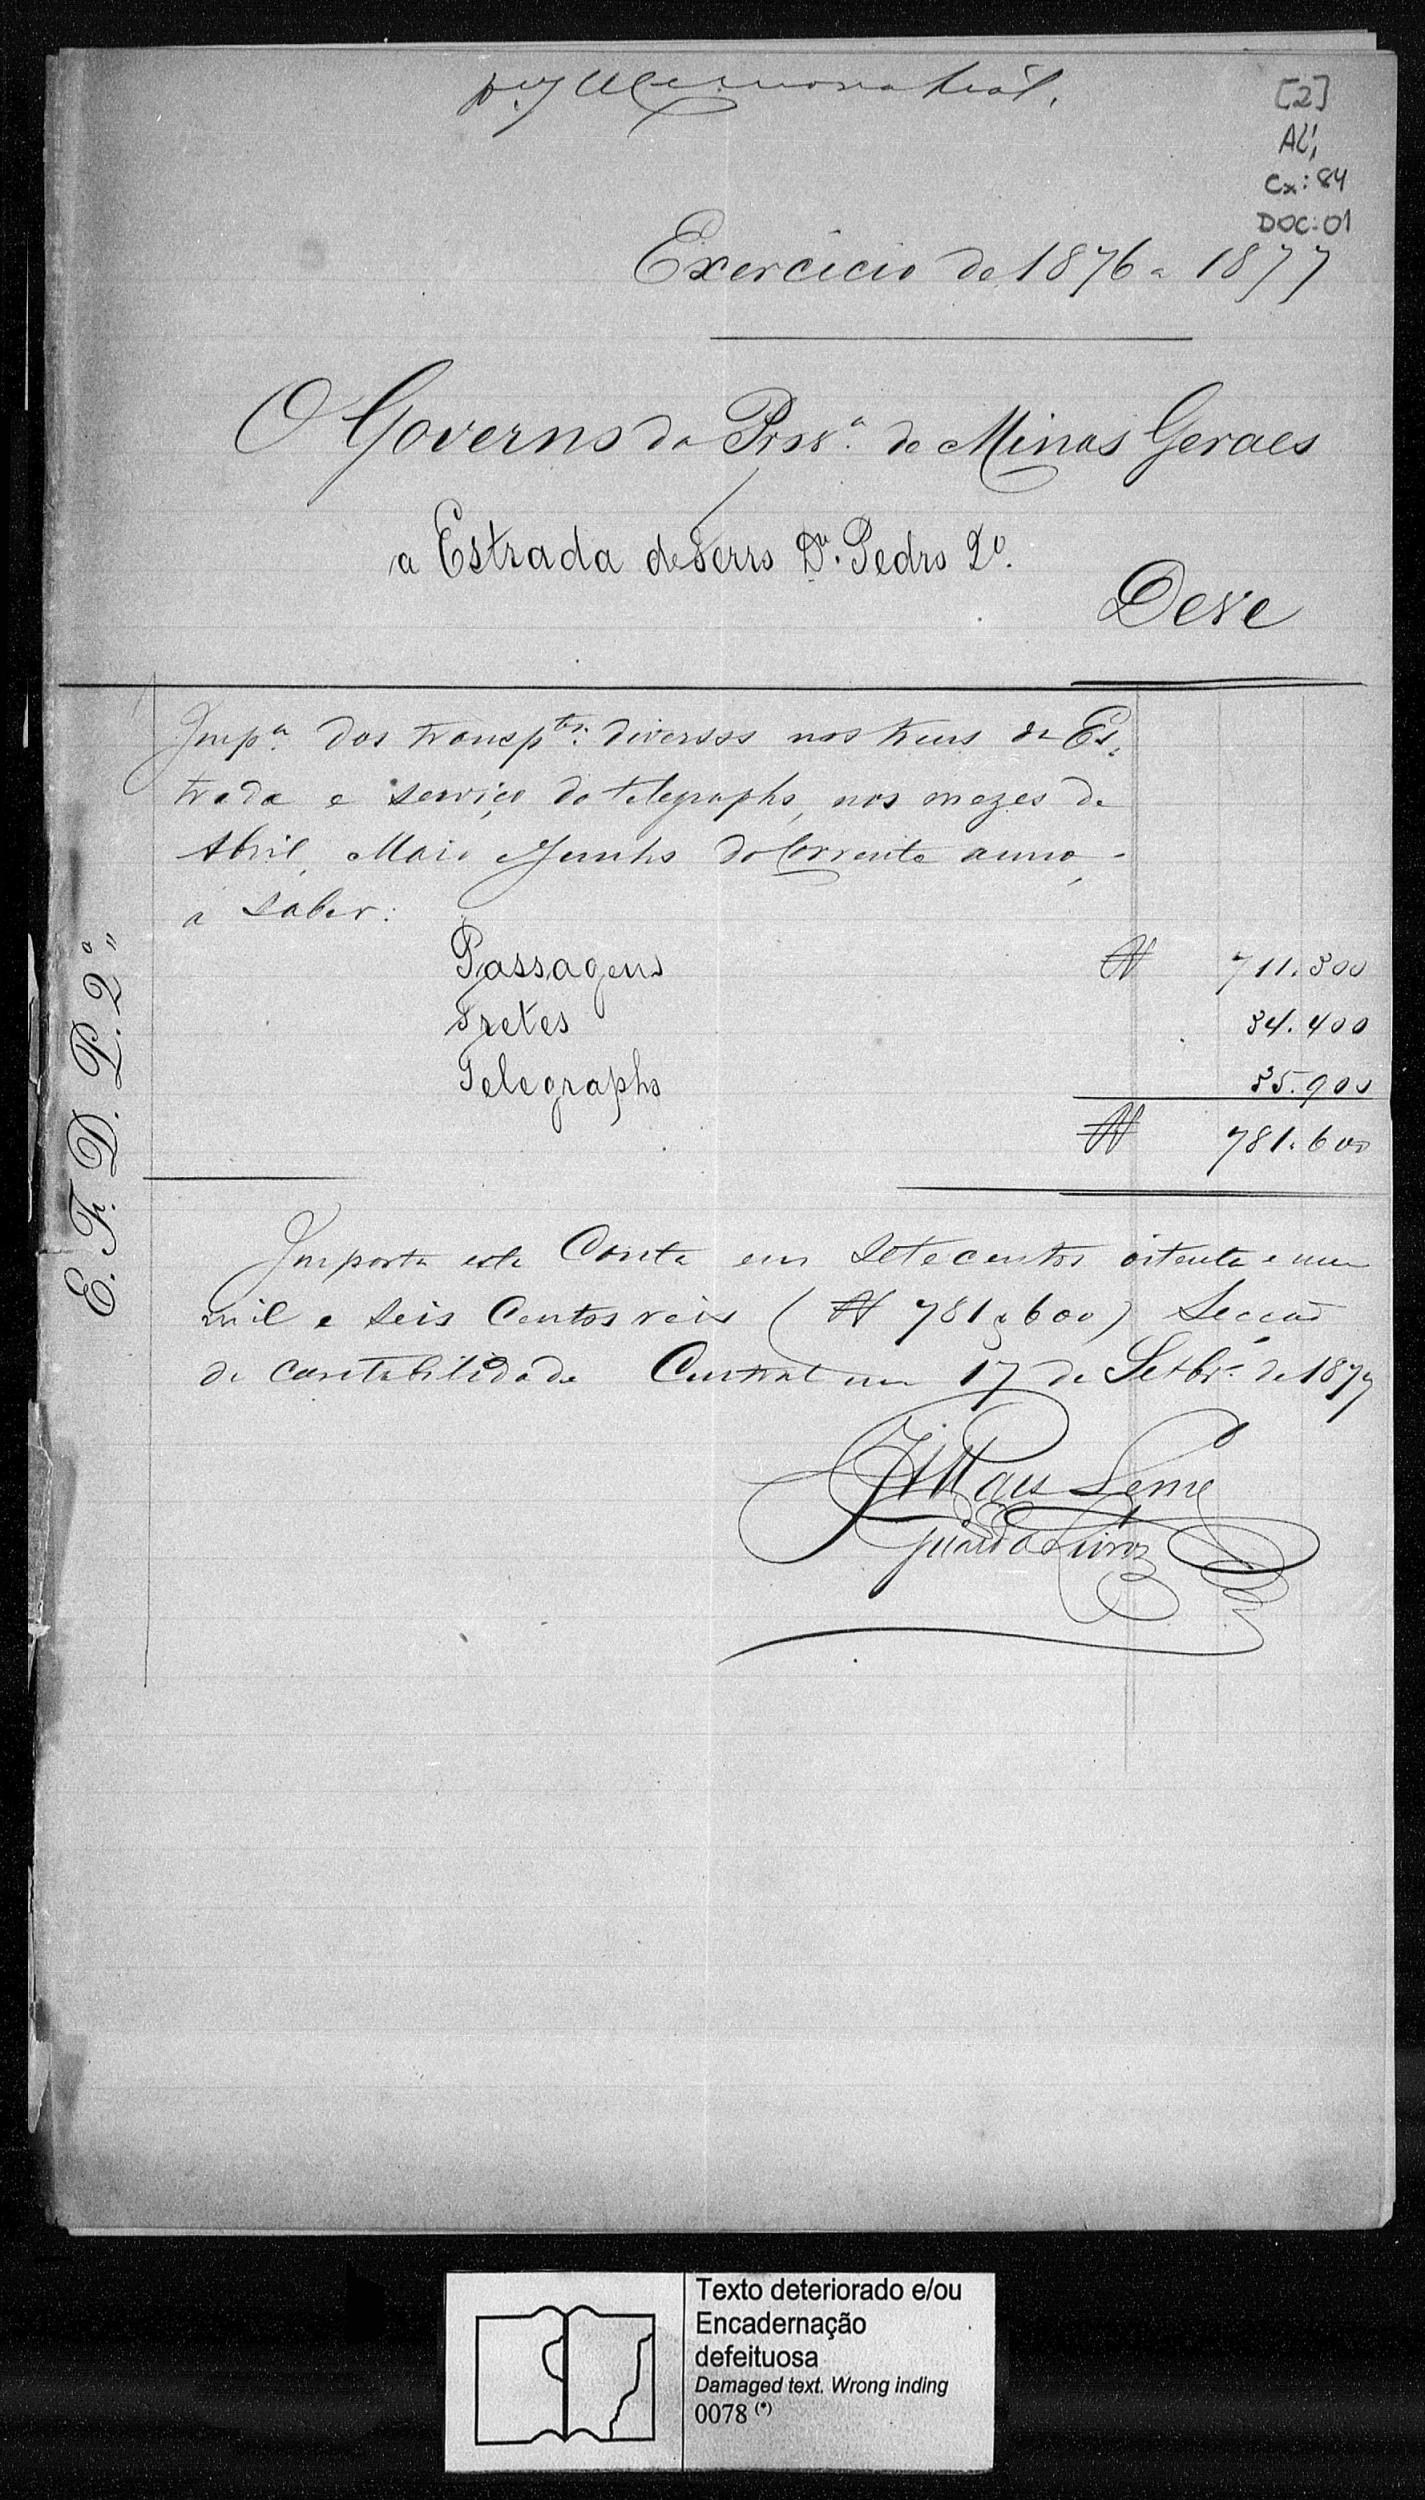 [2]
Cx: 84
DOC: 01
Exercicio de 1876 a 1877
O Governo da Prov.ª de Minas Geraes
a Estrada de Ferro D. Pedro 2º.
Deve
Imp.ª dos transp.tes diversos nos trens da Es-
trada e serviço do telegrapho, nos mezes de
Abril, Maio e Junho do Corrente anno,
a saber:
Passagens 711.300
Fretes 34.400
Telegrapho 35.900
781.600
E. F. D. P. 2º
Importa esta Conta em Setecentos oitenta e um
mil e seis Centos reis (781$600) Secção
de Contabilidade Central em 17 de Setbrº de 1877
Paes Leme
Guarda Livros
Texto deteriorado e/ou
Encadernação
defeituosa
Damaged text. Wrong inding
0078 (*)